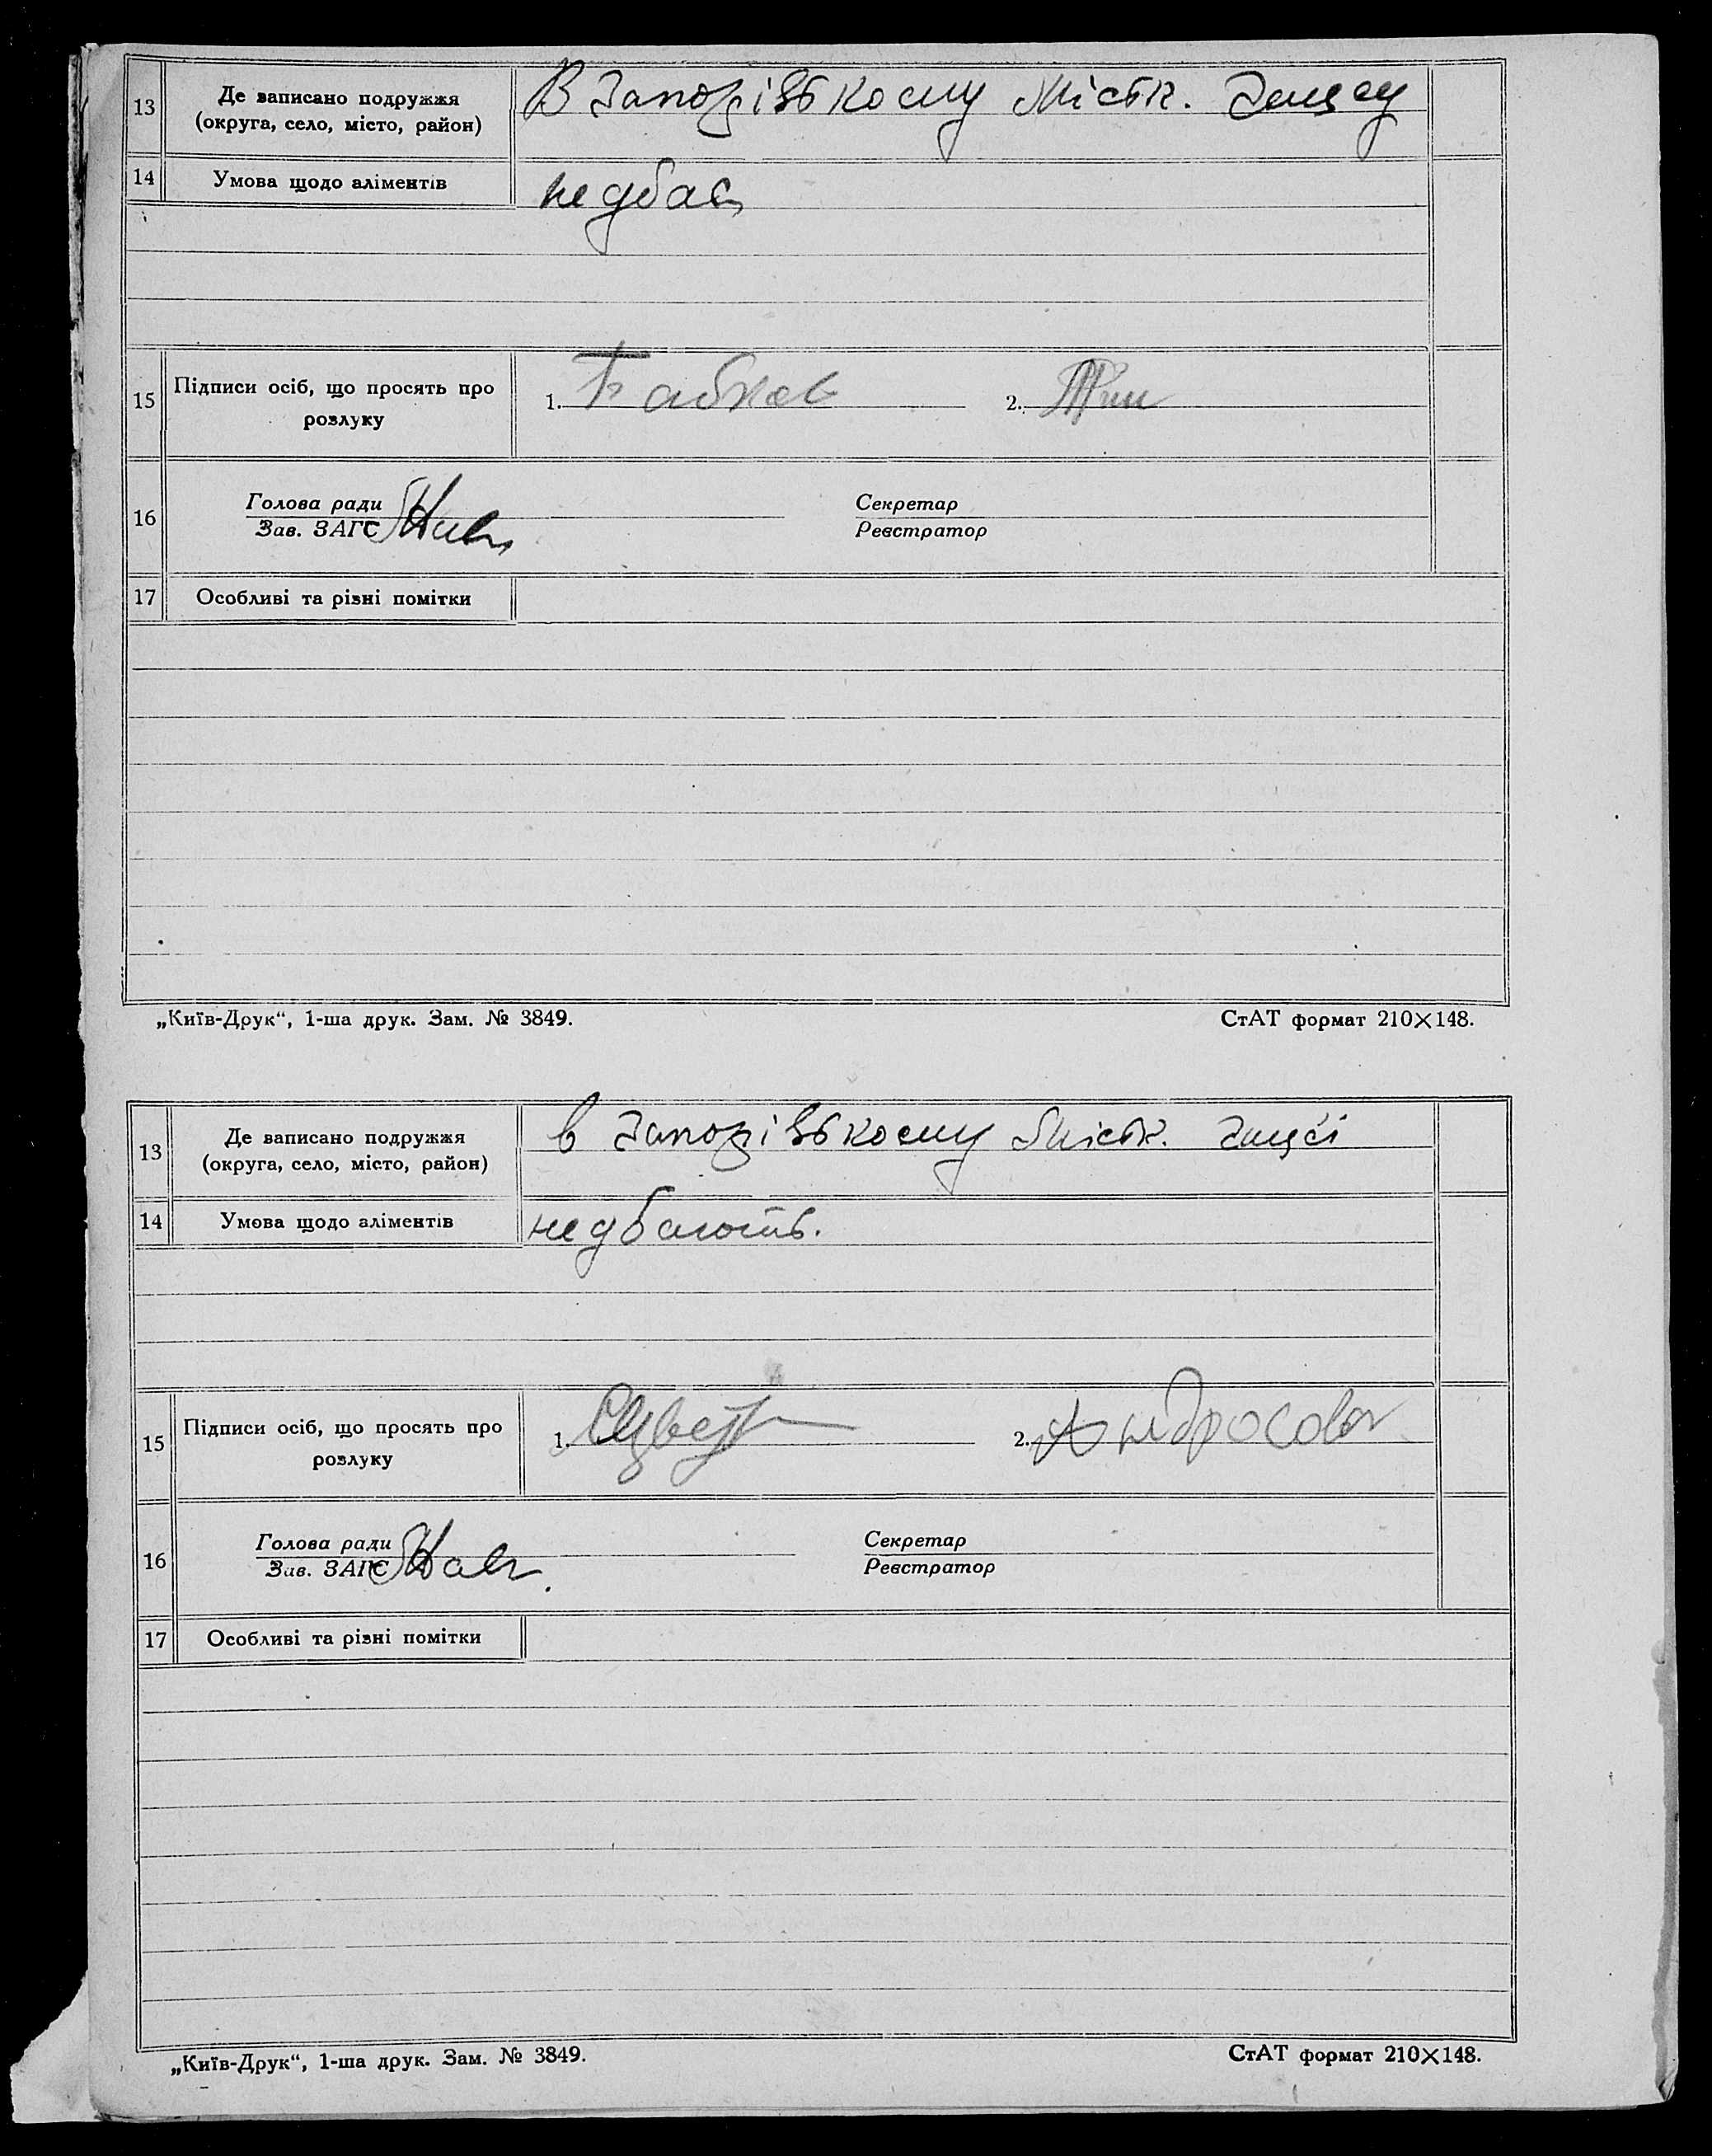 13 Де записано подружжя
(округа, село, місто, район)
В Запорізькому Міськ.
14 Умова щодо аліментів
не дбає
15 Підписи осіб, що просять про
розлуку
1. Бабков 2.
16 Голова ради Секретар
Зав. ЗАГС Реєстратор
17 Особливі та різні помітки
„Київ-Друк“, 1-ша друк. Зам. № 3849. СтАТ формат 210×148.
13 Де записано подружжя
(округа, село, місто, район)
в Запорізькому Міськ.
14 Умова щодо аліментів
не дбають.
15 Підписи осіб, що просять про
розлуку
1. 2. Андросова
16 Голова ради Секретар
Зав. ЗАГС Реєстратор
17 Особливі та різні помітки
„Київ-Друк“, 1-ша друк. Зам. № 3849. СтАТ формат 210×148.